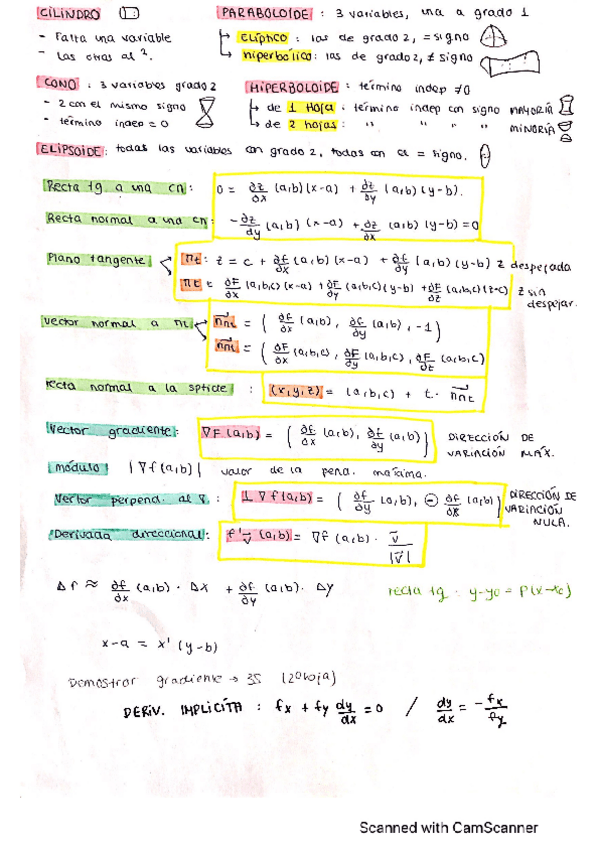 CILINDRO
- Falta una variable
- Las otras al ².
PARABOLOIDE : 3 variables, una a grado 1
↳ elíptico : las de grado 2, = signo
↳ hiperbólico : las de grado 2, ≠ signo
CONO : 3 variables grado 2
- 2 con el mismo signo
- término indep = 0
HIPERBOLOIDE : término indep ≠ 0
↳ de 1 Hoja : término indep con signo MAYORÍA
↳ de 2 hojas : " " " " MINORÍA
ELIPSOIDE : todas las variables con grado 2, todas con el = signo.
Recta tg a una cn : 0 = ∂z/∂x (a,b)(x-a) + ∂z/∂y (a,b)(y-b).
Recta normal a una cn : -∂z/∂y (a,b)(x-a) + ∂z/∂x (a,b)(y-b) = 0
Plano tangente
πt : z = c + ∂f/∂x (a,b)(x-a) + ∂f/∂y (a,b)(y-b) z despejada
πt : ∂F/∂x (a,b,c)(x-a) + ∂F/∂y (a,b,c)(y-b) + ∂F/∂z (a,b,c)(z-c) z sin despejar.
Vector normal a πt
n⃗πt = ( ∂f/∂x (a,b), ∂f/∂y (a,b), -1 )
n⃗πt = ( ∂F/∂x (a,b,c), ∂F/∂y (a,b,c), ∂F/∂z (a,b,c) )
recta normal a la spficie : (x,y,z) = (a,b,c) + t · n⃗πt
Vector gradiente : ∇F(a,b) = ( ∂f/∂x (a,b), ∂f/∂y (a,b) ) DIRECCIÓN DE VARIACIÓN MÁX.
módulo |∇f(a,b)| valor de la pend. máxima.
Vector perpend. al ∇ : ⊥∇f(a,b) = ( ∂f/∂y (a,b), - ∂f/∂x (a,b) ) DIRECCIÓN DE VARIACIÓN NULA.
Derivada direccional : f'v⃗ (a,b) = ∇f (a,b) · v⃗/|v⃗|
Δf ≈ ∂f/∂x (a,b) · Δx + ∂f/∂y (a,b) · Δy
recta tg : y-y₀ = P(x-x₀)
x-a = x' (y-b)
Demostrar gradiente → 35 (2ª hoja)
DERIV. IMPLICITA : fx + fy dy/dx = 0 / dy/dx = - fx/fy
Scanned with CamScanner